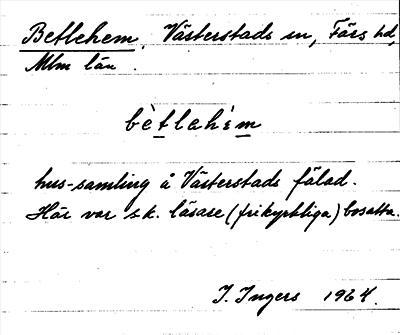 Betlehem, Västerstads sn, Färs hd,
Mlm län.
bètlahém
hus-samling å Västerstads fälad.
Här var s.k. läsare (frikyrkliga) bosatta.
I. Ingers 1964.